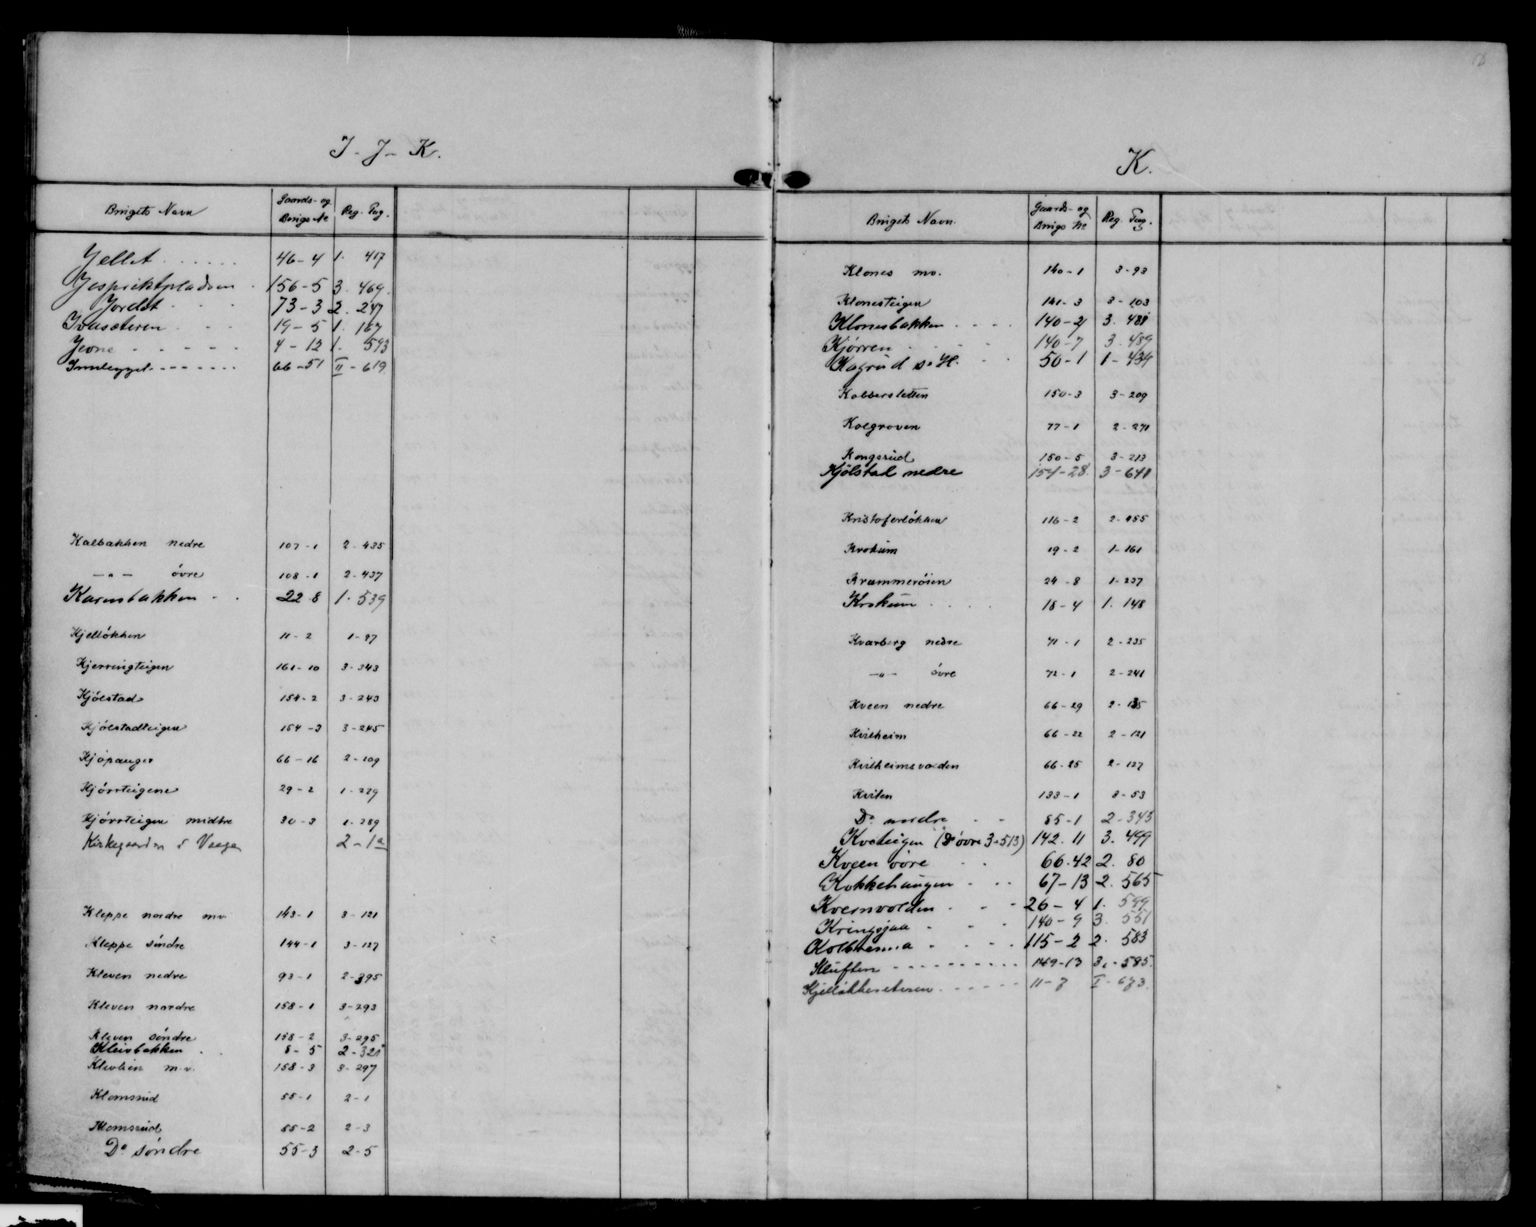 I - J - K.
Brugets Navn Gaards- og Brugs № Reg. Pag.
Jellet 46-4 1. 417
Jespriktpladsen 156-5 3. 469.
Jordet 73-3 2. 247
Ivasæteren 19-5 1. 167
Jevne 4-12 1. 593
Innlegget 66-51 II-619
Kalbakken nedre 107-1 2-435
-"- övre 108-1 2-437
Karusbakken 22 8 1. 539
Kjellökken 11-2 1-97
Kjerringteigen 161-10 3-343
Kjölstad 154-2 3-243
Kjölstadteigen 154-3 3-245
Kjöpanger 66-16 2-109
Kjörsteigene 29-2 1-279
Kjörsteigen midtre 30-3 1-289
Kirkegaarden i Vaage 2-1a
Kleppe nordre m.v. 143-1 3-121
Kleppe söndre 144-1 3-127
Kleven nedre 93-1 2-395
Kleven nordre 158-1 3-293
Kleven söndre 158-2 3-295
Kleivbakken 8-5 2-321
Klevlien m.v. 158-3 3-297
Klomsrud 55-1 2-1
Klomsrud 55-2 2-3
Do söndre 55-3 2-5
K.
Brugets Navn. Gaards- og Brugs № Reg. Pag.
Klones mv. 140-1 3-93
Klonesteigen 141-3 3-103
Klonesbakken 140-2 3. 481
Kjørren 140-7 3. 489
Kogrud s. H. 50-1 1-439
Kolberstetten 150-3 3-209
Kolgroven 77-1 2-271
Kongsrud 150-5 3-213
Kjölstad nedre 154-28. 3-641
Kristoferlökken 116-2 2-455
Krokum 19-2 1-161
Krammeröien 24-8 1-237
Krokum 18-4 1. 148
Kvarberg nedre 71-1 2-235
-"- övre 72-1 2-241
Kveen nedre 66-29 2-135
Kvilheim 66-22 2-121
Kvilheimsvolden 66-25 2-127
Kviten 133-1 3-53
Do nordre 85-1 2-343
Kvoteigen (Do övre 3-513) 142. 11 3. 499
Kveen övre 66. 42 2. 80
Kokkehaugen 67-13 2. 565
Kvernvolden 26-4 1. 599
Kringsjaa 140-9 3. 551
Kolbrenna 115-2 2. 583
Kluften 149-13 3.-585.
Kjellökkensæteren 11-8 I-673.